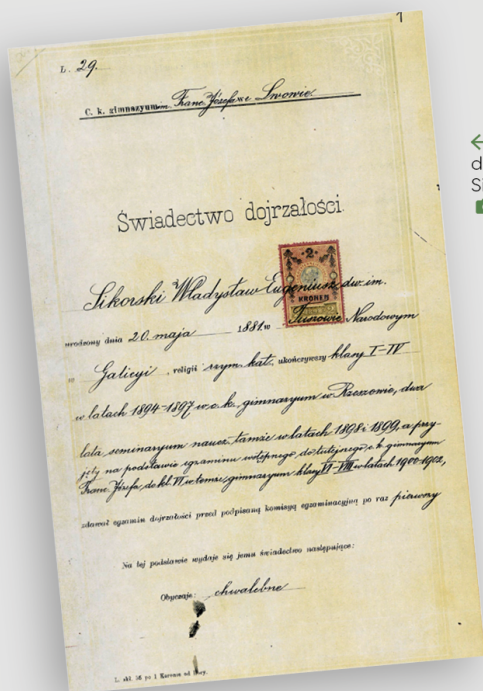 1
L. 29.
C. k. gimnazyum Franc. Józefa we Lwowie
Świadectwo dojrzałości.
2
KRONEN
Sikorski Władysław Eugeniusz, dw. im.
urodzony dnia 20. maja 1881. w Tuszowie Narodowym
w Galicyi, religii rzym. kat., ukończywszy klasy I-IV
w latach 1894-1897 w c. k. gimnazyum w Rzeszowie, dwa
lata seminaryum naucz. tamże w latach 1898 i 1899, a przy-
jęty na podstawie egzaminu wstępnego do tutejszego c. k. gimnazyum
Franc. Józefa, do kl. VI, w temże gimnazyum klasy VI-VIII w latach 1900-1902,
zdawał egzamin dojrzałości przed podpisaną komisyą egzaminacyjną po raz pierwszy
Na tej podstawie wydaje się jemu świadectwo następujące:
Obyczaje: chwalebne
L. skł. 56 po 1 Koronie od